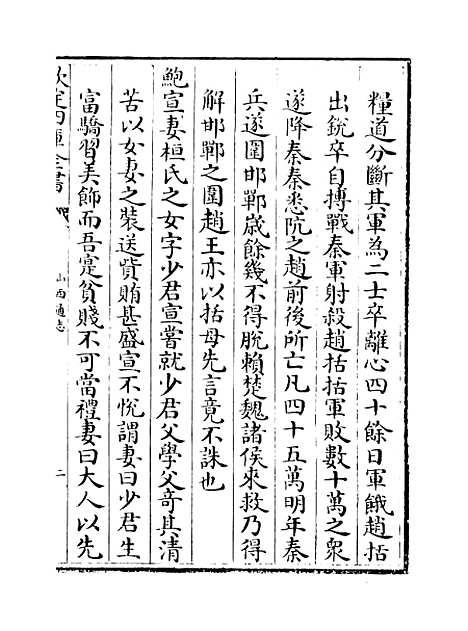 糧道分斷其軍為二士卒離心四十餘日軍餓趙括
出銳卒自搏戰秦軍射殺趙括括軍敗數十萬之衆
遂降秦秦悉阬之趙前後所亡凡四十五萬明年秦
兵遂圍邯鄲嵗餘幾不得脫賴楚魏諸侯來救乃得
解邯鄲之圍趙王亦以括母先言竟不誅也
鮑宣妻桓氏之女字少君宣嘗就少君父學父竒其清
苦以女妻之装送貲賄甚盛宣不悅謂妻曰少君生
富驕習美飾而吾寔貧賤不可當禮妻曰大人以先
欽定四庫全書
山西通志
二